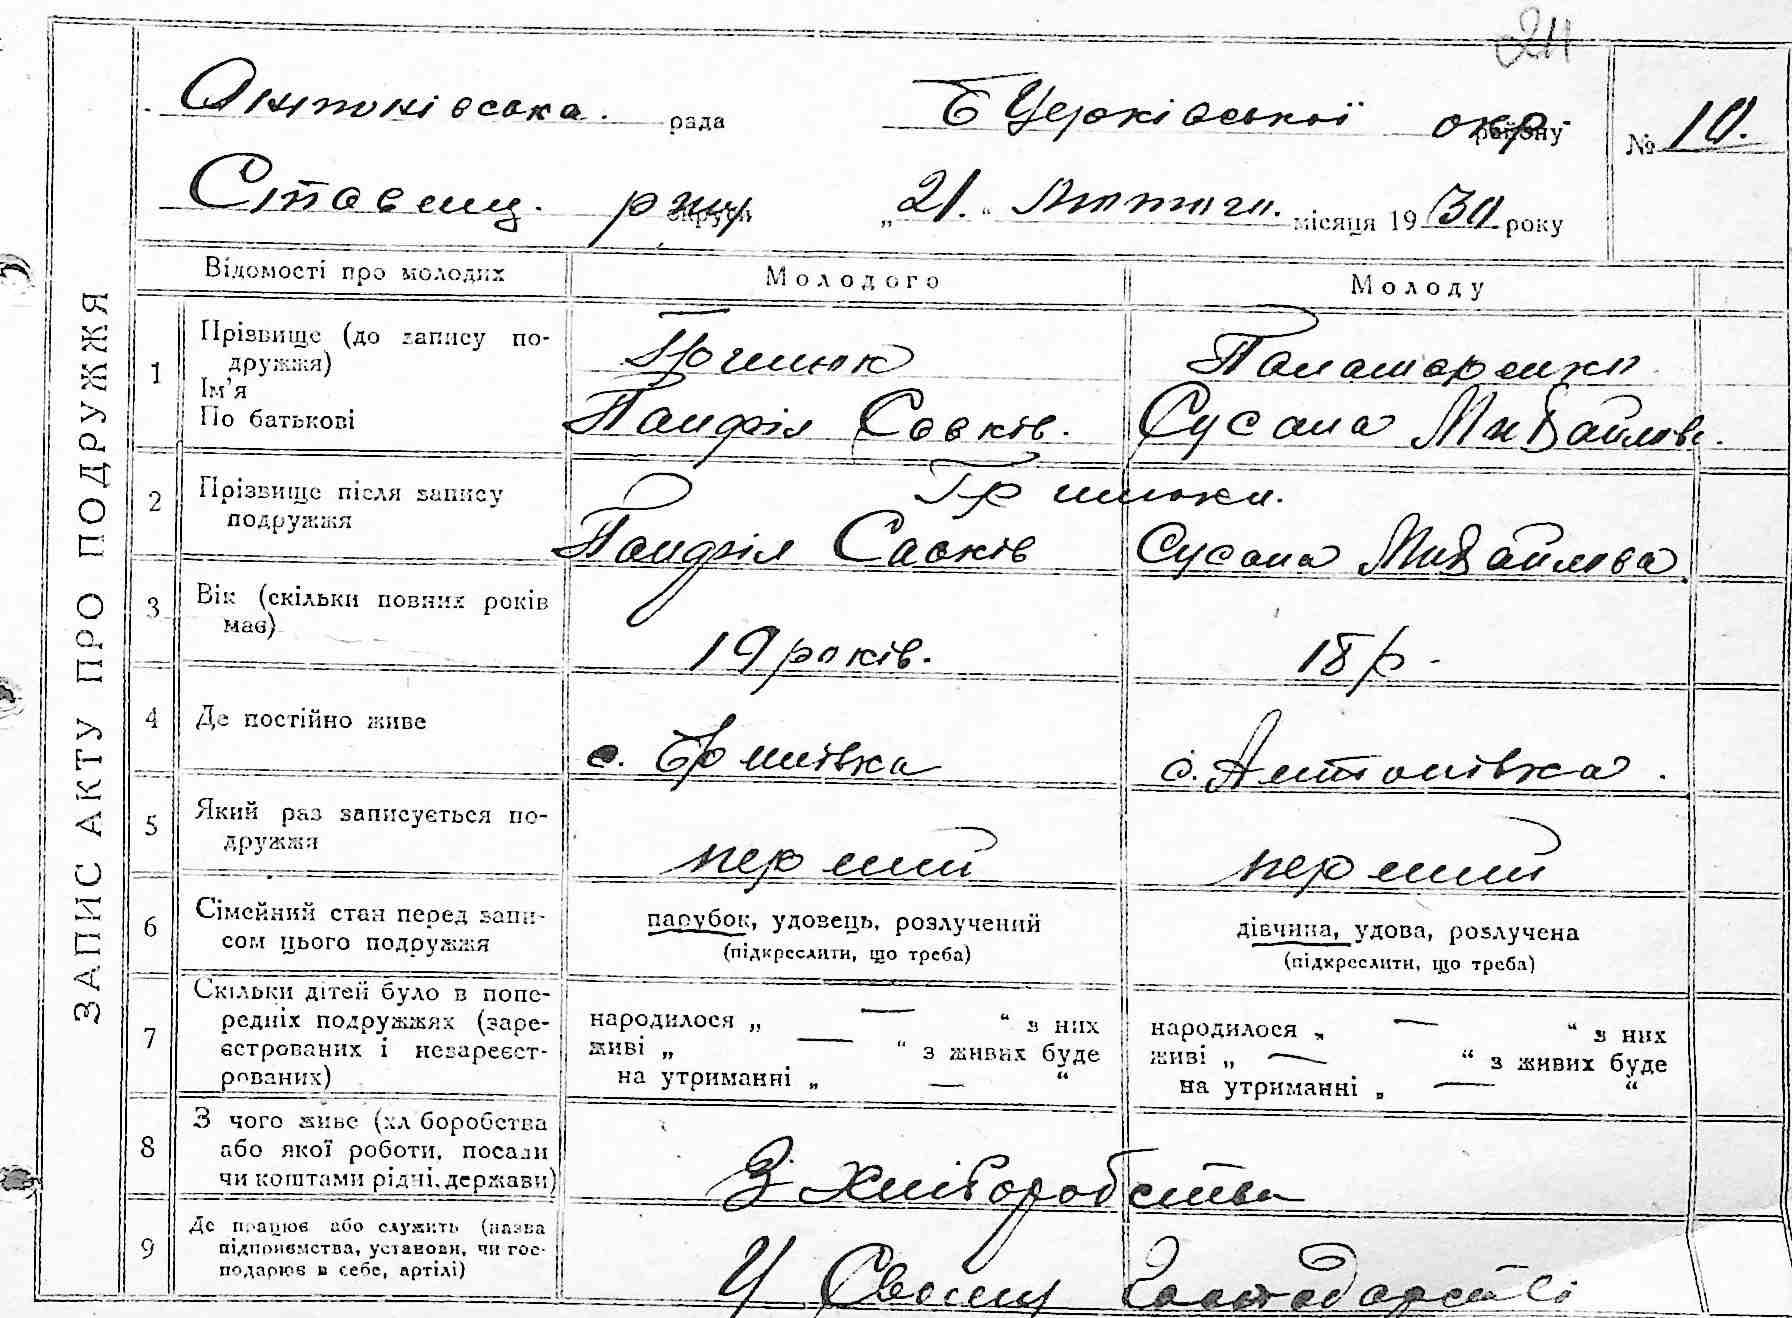 24
Антонівська. рада Б Церківської окр. району № 10.
Ставищ. р-ну округи „21.“ Лютого. місяця 1930 року
ЗАПИС АКТУ ПРО ПОДРУЖЖЯ
Відомості про молодих Молодого Молоду
1 Прізвище (до запису по-
дружжя)
Ім’я
По батькові
Паламаренко
Панфіл Савків. Сусана Михайлов.
2 Прізвище після запису
подружжя
Панфіл Савків Сусана Михайлова
3 Вік (скільки повних років
має)
19 років. 18 р.
4 Де постійно живе
с. Антонівка.
5 Який раз записується по-
дружжя
перший перший
6 Сімейний стан перед запи-
сом цього подружжя
парубок, удовець, розлучений
(підкреслити, що треба)
дівчина, удова, розлучена
(підкреслити, що треба)
7 Скільки дітей було в попе-
редніх подружжях (заре-
єстрованих і незареєст-
рованих)
народилося „ — “ з них
живі „ — “ з живих буде
на утриманні „ — “
народилося „ — “ з них
живі „ — “ з живих буде
на утриманні „ — “
8 З чого живе (хліборобства
або якої роботи, посади
чи коштами рідні, держави)
З хліборобства
9 Де працює або служить (назва
підприємства, установи, чи гос-
подарює в себе, артілі)
У Своему господарстві